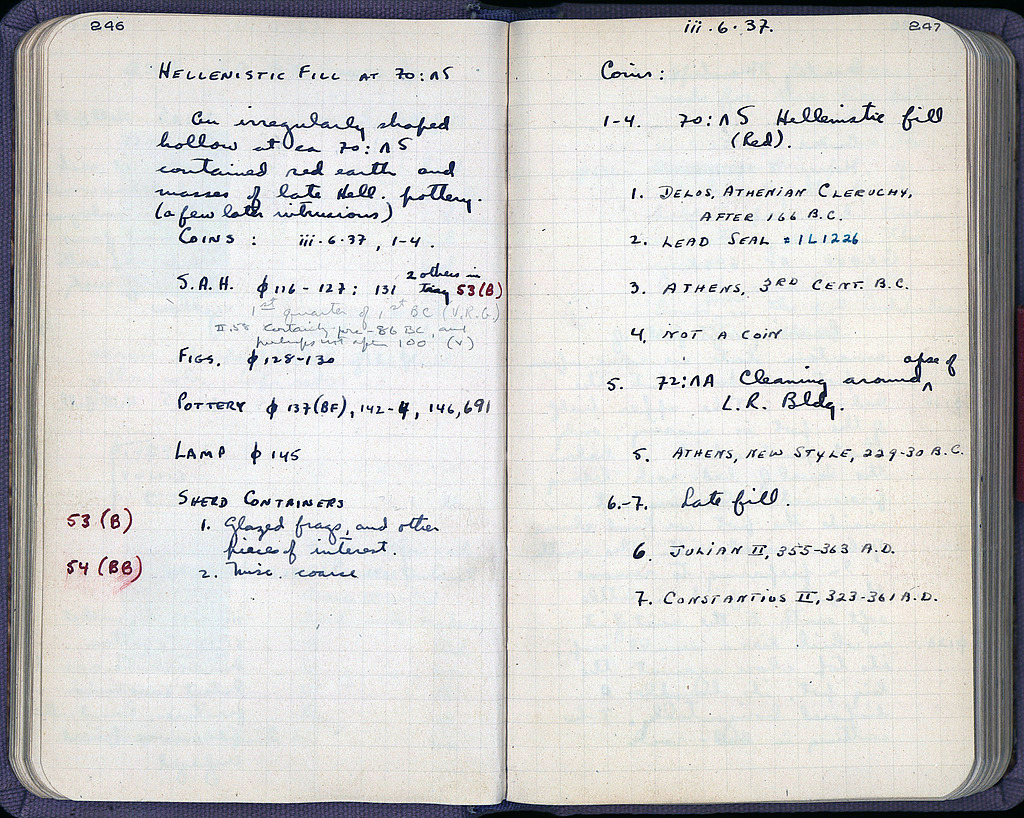 246
HELLENISTIC FILL AT 70:ΛS
An irregularly shaped
hollow at ca 70:ΛS
contained red earth and
masses of late Hell. pottery.
(a few later intrusions)
COINS : iii.6.37, 1-4.
2 others in
S.A.H. φ 116-127; 131 tray 53(B)
1st quarter of 1st BC (V.R.G.)
II.58 certainly pre-86 BC, and
perhaps not after 100 (V)
FIGS. φ 128-130
POTTERY φ 137(BF), 142-4, 146, 691
LAMP φ 145
SHERD CONTAINERS
53 (B) 1. Glazed frags, and other
pieces of interest.
54 (BB) 2. Misc. coarse
iii.6.37.
247
Coins:
1-4. 70:ΛS Hellenistic fill
(Red).
1. DELOS, ATHENIAN CLERUCHY,
AFTER 166 B.C.
2. LEAD SEAL = IL1226
3. ATHENS, 3RD CENT. B.C.
4. NOT A COIN
apse of
5. 72:ΛA Cleaning around ^
L.R. Bldg.
5. ATHENS, NEW STYLE, 229-30 B.C.
6.-7. Late fill.
6. JULIAN II, 355-363 A.D.
7. CONSTANTIUS II, 323-361 A.D.